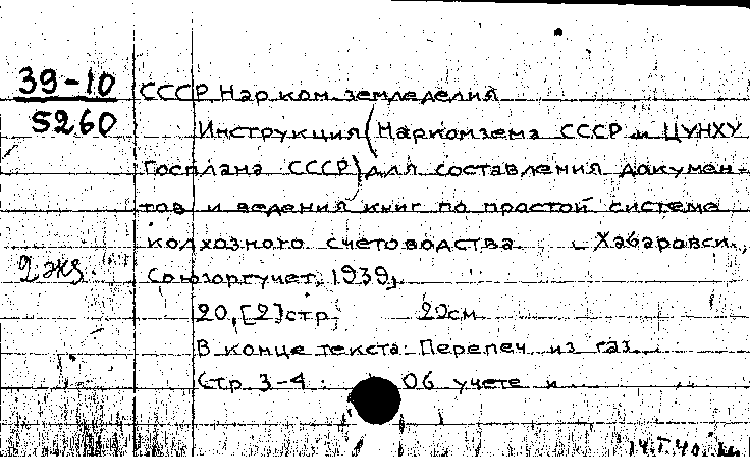 39-10
5260
2 экз.
СССР. Нарком. земледелия
Инструкция (Наркомзема СССР и ЦУНХУ
Госплана СССР) для составления докумен-
тов и ведения книг по простой системе
колхозного счетоводства. - Хабаровск.,
Союзоргучет, 1939,
20, [2] стр. 20 см
В конце текста: Перепеч. из газ.
Стр. 3-4: Об учете и